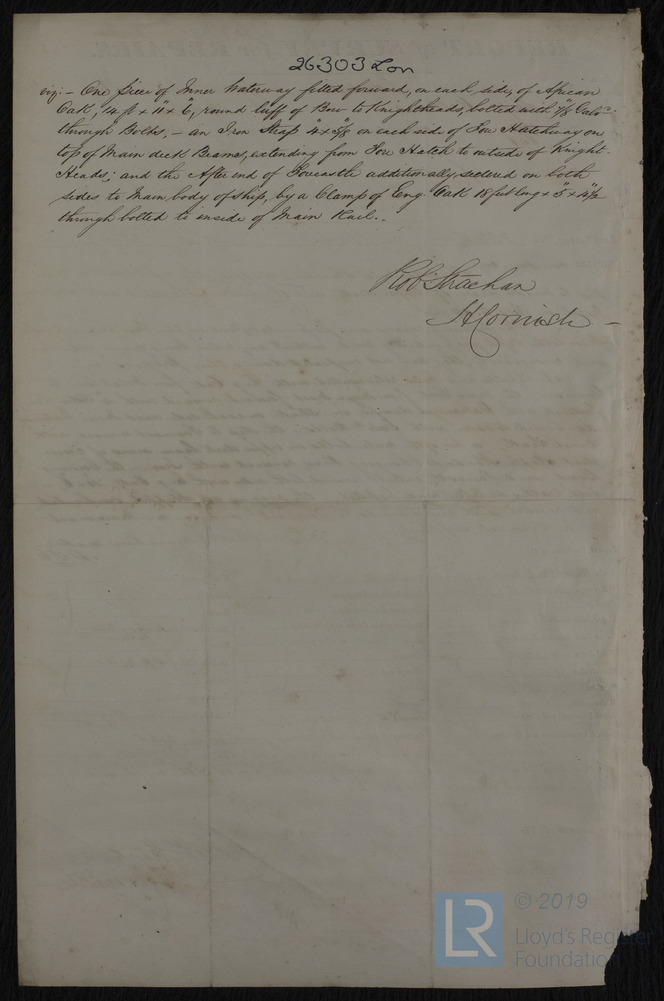 26303 Lon
viz:- One piece of Inner Waterway fitted forward, on each side, of African
Oak, 14 ft x 11" x 6", round luff of Bow to Knightheads, bolted with 7/8 Galvd
through Bolts, - an Iron Strap 4" x 5/8 on each side of Fore Hatchway on
top of Main deck Beams, extending from Fore Hatch to outside of Knight-
Heads; and the After end of Forecastle additionally secured on both
sides to Main body of ship, by a Clamp of Eng. Oak 18 feet long x 5" x 4 1/2"
through bolted to inside of Main Rail.
Robt Strachan
H Cornish
LR © 2019
Lloyd's Register
Foundation